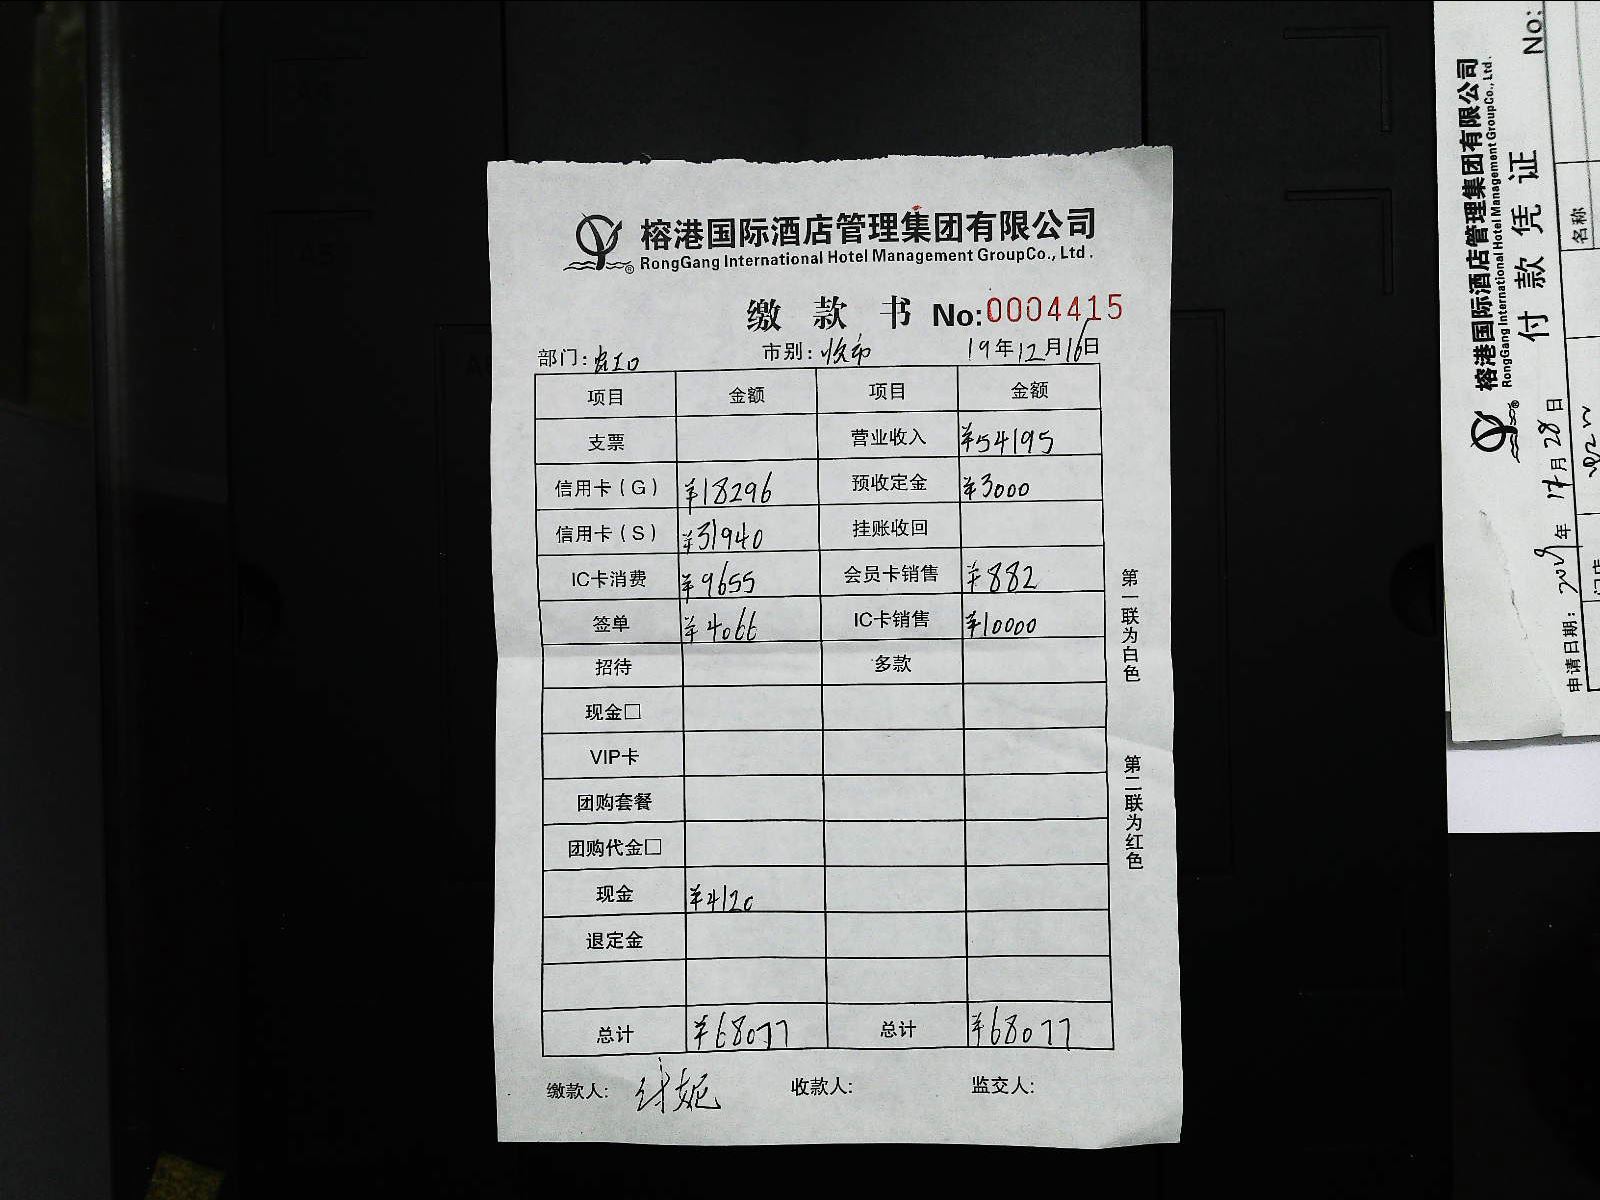 榕港国际酒店管理集团有限公司
RongGang International Hotel Management GroupCo., Ltd.
缴 款 书 No:0004415
部门: 市别:收市 19年12月16日
项目 金额 项目 金额
支票 营业收入 ¥54195
信用卡(G) ¥18296 预收定金 ¥3000
信用卡(S) ¥31940 挂账收回
IC卡消费 ¥9655 会员卡销售 ¥882
签单 ¥4066 IC卡销售 ¥10000
招待 多款
现金□
VIP卡
团购套餐
团购代金□
现金 ¥4120
退定金
总计 ¥68077 总计 ¥68077
缴款人: 收款人: 监交人:
第一联为白色
第二联为红色
榕港国际酒店管理集团有限公司
RongGang International Hotel Management GroupCo., Ltd.
付 款 凭 证 No:
申请日期: 2019年 月28日
名称
门店